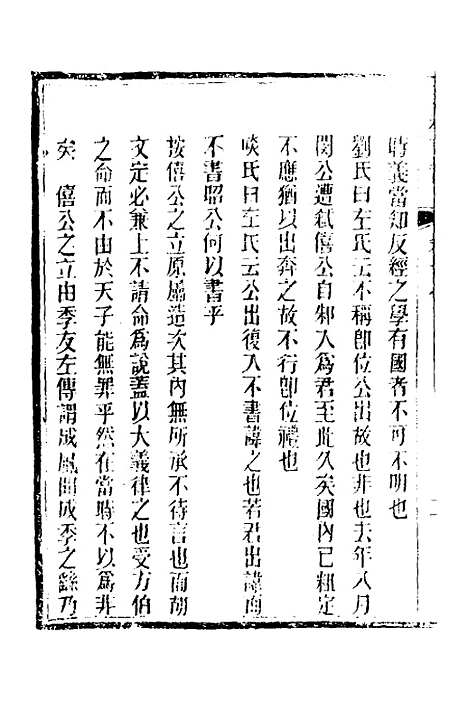 時義當知反經之學有國者不可不明也
劉氏曰左氏云不稱卽位公出故也非也去年八月
閔公遭弒僖公自邾入爲君至此久矣國內已粗定
不應猶以出奔之故不行卽位禮也
啖氏曰左氏云公出復入不書諱之也若君出諱而
不書昭公何以書乎
按僖公之立原屬造次其內無所承不待言也而胡
文定必兼上不請命爲說蓋以大義律之也受方伯
之命而不由於天子能無罪乎然在當時不以爲非
矣 僖公之立由季友左傳謂成風聞成季之繇乃